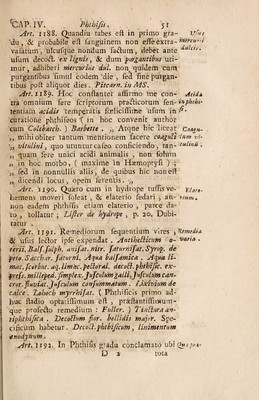 CAP. IV. Phthisis. 51
Art. 1188. Quandiu tabes est in primo gra-
du, & probabile est sanguinem non esse extra-
vasatum, ulcusque nondum factum, debet ante
usum decoct. ex lignis, & dum purgantibus uti-
mur, adhiberi mercurius dul. non quidem cum
purgantibus simul eodem die, sed sine purgan-
tibus pot aliquot dies. Pitcarn. in MS.
Usus
mercurii
dulcis.
Art. 1189. Hoc constanter affirmo me con-
tra omnium fere scriptorum practicorum sen-
tentiam acidis temperatis fœlicissime usum in
curatione phthiseos (in hoc convenit author
cum Colbatch.) Barbette. „ Atque hic liceat
„ mihi obiter tantum mentionem facere coaguli
„ vitulini, quo utuntur caseo conficiendo, tan-
„ quam fere unici acidi animalis, non solum
„ in hoc morbo, (maxime in Hæmoptysi)
„ sed in nonnullis aliis, de quibus hic non est
„ dicendi locus, opem ferentis. „
Acida
in phthi-
si.
Coagu-
lum vi-
tulinu
Art. 1190. Quæro cum in hydrope tusses ve-
hemens moveri soleat, & elaterio sedari, an-
non eadem phthisis etiam elaterio, parce da-
to, tollatur; Lister de hydrope, p. 20. Dubi-
tatur.
Elate-
rium.
Art. 1191. Remediorum sequentium vires
& usus lector ipse expendat. Antihecticum
terii. Balf. sulph. anisat. nitr. saturnisat. Syrop. de
pto. Sacchar. saturni. Aqua balsamica. Aqua li-
mac. scorbut. aq. limac. pectoral. decoct. phthisic. ex-
press. milleped. simplex. Jusculum galli, Jusculum can-
cror. fluviat. Jusculum consummatum. Linctorium de
calce. Looch myrrhisat. (Phthisicis primo ad-
huc stadio optatissimum est, præstantissimum-
que profecto remedium: Foller.) Tinctura an-
tiphthisica. Decoctum flor. bellidis major. Spe-
cificum habetur. Decoct. phthisicum, linimentum
anodynum.
Remedia
varia.
Art. 1192. In Phthisis grada conclamato ubi
D 2 tota